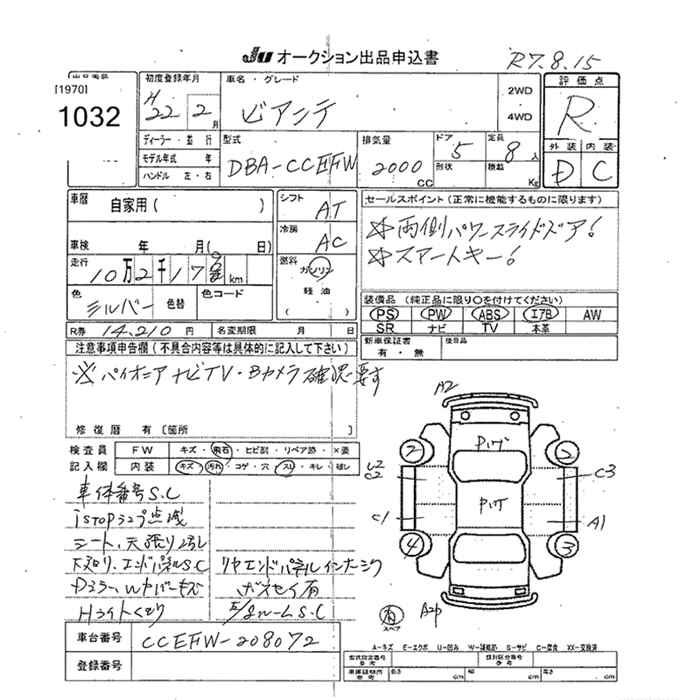 JU オークション出品申込書 R7.8.15
[1970]
1032
初度登録年月
H 22年 2月
車名・グレード
ビアンテ
2WD
4WD
評価点
R
外装 内装
D C
ディーラー・並行
モデル年式 年
ハンドル 左・右
型式
DBA-CCEFW
排気量
2000 CC
ドア
5
形状
定員
8人
積載 Kg
車歴
自家用( )
シフト
AT
冷房
AC
車検 年 月( 日)
走行
燃料
ガソリン
軽油
10万2千17 km
色
シルバー 色替
色コード
R券 14,210円 名変期限 月 日
セールスポイント(正常に機能するものに限ります)
☆両側パワースライドドア!
☆スマートキー!
装備品(純正品に限り○を付けてください)
PS PW ABS エアB AW
SR ナビ TV 本革
新車保証書
有・無
後日品
注意事項申告欄(不具合内容等は具体的に記入して下さい)
※パイオニアナビTV・Bカメラ確認要す
修復歴 有[箇所
検査員
記入欄
FW キズ・飛石・ヒビ割・リペア跡・×要
内装 キズ・汚れ・コゲ・穴・スレ・キレ・破レ
車体番号S.C
iSTOPランプ点滅
シート、天張り
下廻り、エンドパネルS.C
Dミラー、Wカバーキズ
Hライトくもり
リヤエンドパネルインナー
S.C
車台番号 CCEFW-208072
登録番号
A2
Pけけ
Pけけ
2
2
C2
C3
C1
A1
4
3
有
スペア
A2P
A-キズ E-エクボ U-凹み W-補修跡 S-サビ C-腐食 XX-交換済
型式指定番号
参考
類別区分番号
参考
車庫証明
参考
長さ cm
幅 cm
高さ cm